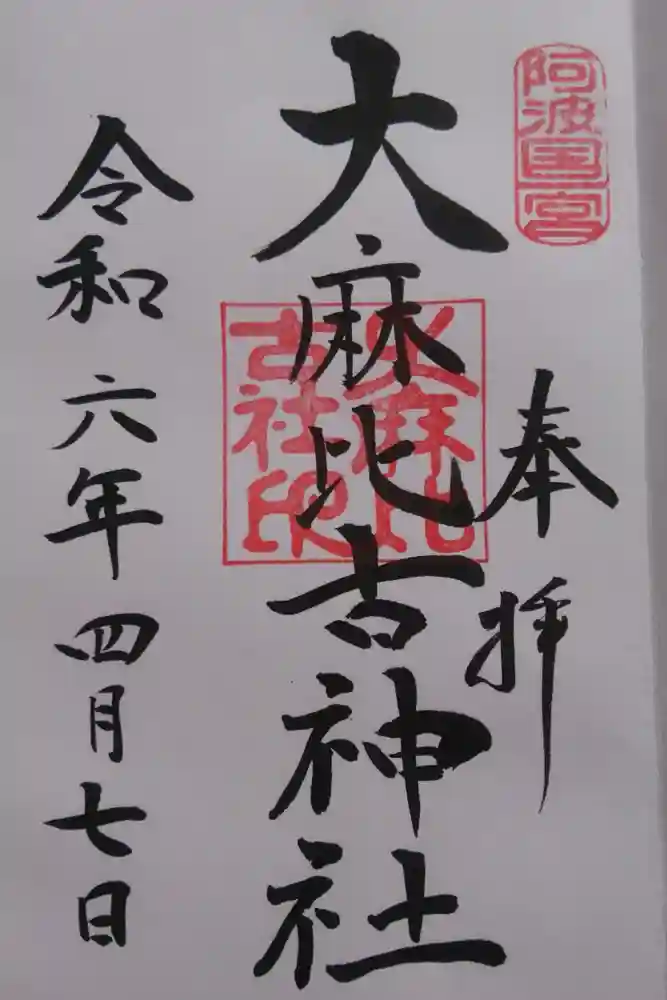 阿波国一宮
奉拝
大麻比古神社
大麻比古社印
令和六年四月七日